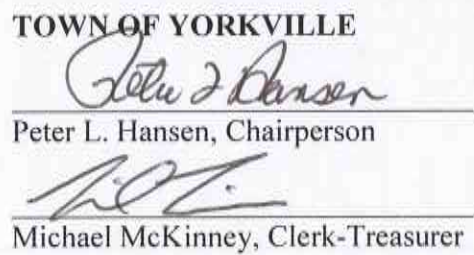 TOWN OF YORKVILLE
Peter L Hansen
Peter L. Hansen, Chairperson
Michael McKinney, Clerk-Treasurer